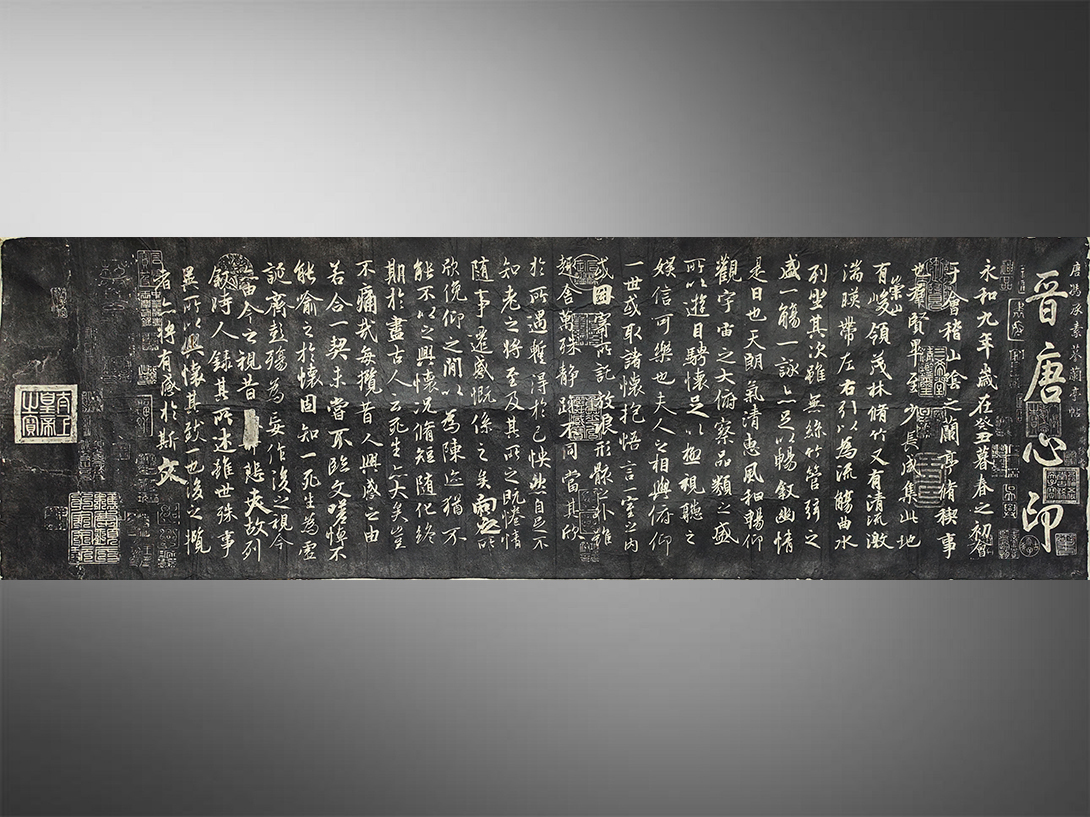 唐馮承素摹蘭亭帖
晋唐心印
永和九年歲在癸丑暮春之初會
于會稽山陰之蘭亭脩稧事
也羣賢畢至少長咸集此地
有崇山峻領茂林脩竹又有清流激
湍暎帶左右引以為流觴曲水
列坐其次雖無絲竹管弦之
盛一觴一詠亦足以暢叙幽情
是日也天朗氣清惠風和暢仰
觀宇宙之大俯察品類之盛
所以遊目騁懷足以極視聽之
娛信可樂也夫人之相與俯仰
一世或取諸懷抱悟言一室之內
或因寄所託放浪形骸之外雖
趣舍萬殊靜躁不同當其欣
於所遇蹔得於己怏然自足不
知老之將至及其所之既惓情
隨事遷感慨係之矣向之所
欣俛仰之閒以為陳迹猶不
能不以之興懷況脩短隨化終
期於盡古人云死生亦大矣豈
不痛哉每攬昔人興感之由
若合一契未嘗不臨文嗟悼不
能喻之於懷固知一死生為虛
誕齊彭殤為妄作後之視今
亦由今之視昔悲夫故列
叙時人錄其所述雖世殊事
異所以興懷其致一也後之攬
者亦將有感於斯文
太上皇帝之寶